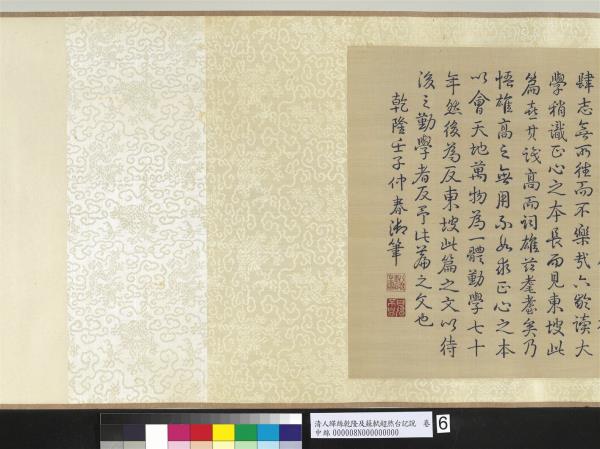 肆志無所往而不樂哉六齡讀大
學稍識正心之本長而見東坡此
篇喜其識高而詞雄茲耄耋矣乃
悟雄高之無用不如求正心之本
以會天地萬物為一體勤學七十
年然後為反東坡此篇之文以待
後之勤學者反予此篇之文也
乾隆壬子仲春御筆
清人緙絲乾隆反蘇軾超然台記說 卷
中絲 000008N000000000
6